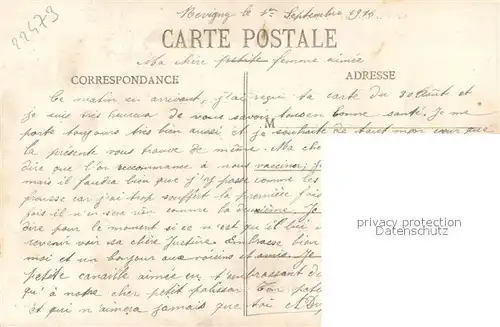 22473
Revigny le 1er Septembre 1915
CARTE POSTALE
Ma chère petite femme aimée
CORRESPONDANCE
ADRESSE
Ce matin en arrivant, j'ai reçu ta carte du 30 Août et
je suis très heureux de vous savoir tous en bonne santé. Je me
M
porte toujours très bien aussi et je souhaite de tout mon cœur que
la présente vous trouve de même. Ma
dire que l'on recommance à nous vacciner,
mais il faudra bien que j'y passe comme les
car j'ai trop souffert la première fois
fois il n'en sera rien comme la deuxième. Je
dire pour le moment si ce n'est qu'il lui
revenir voir sa chère Justine. Embrasse bien
moi et un bonjour aux voisins et amis. Je
petite canaille aimée en t'embrassant
qu'à notre cher petit polisson. Ton
et qui n'aimera jamais que toi
privacy protection
Datenschutz